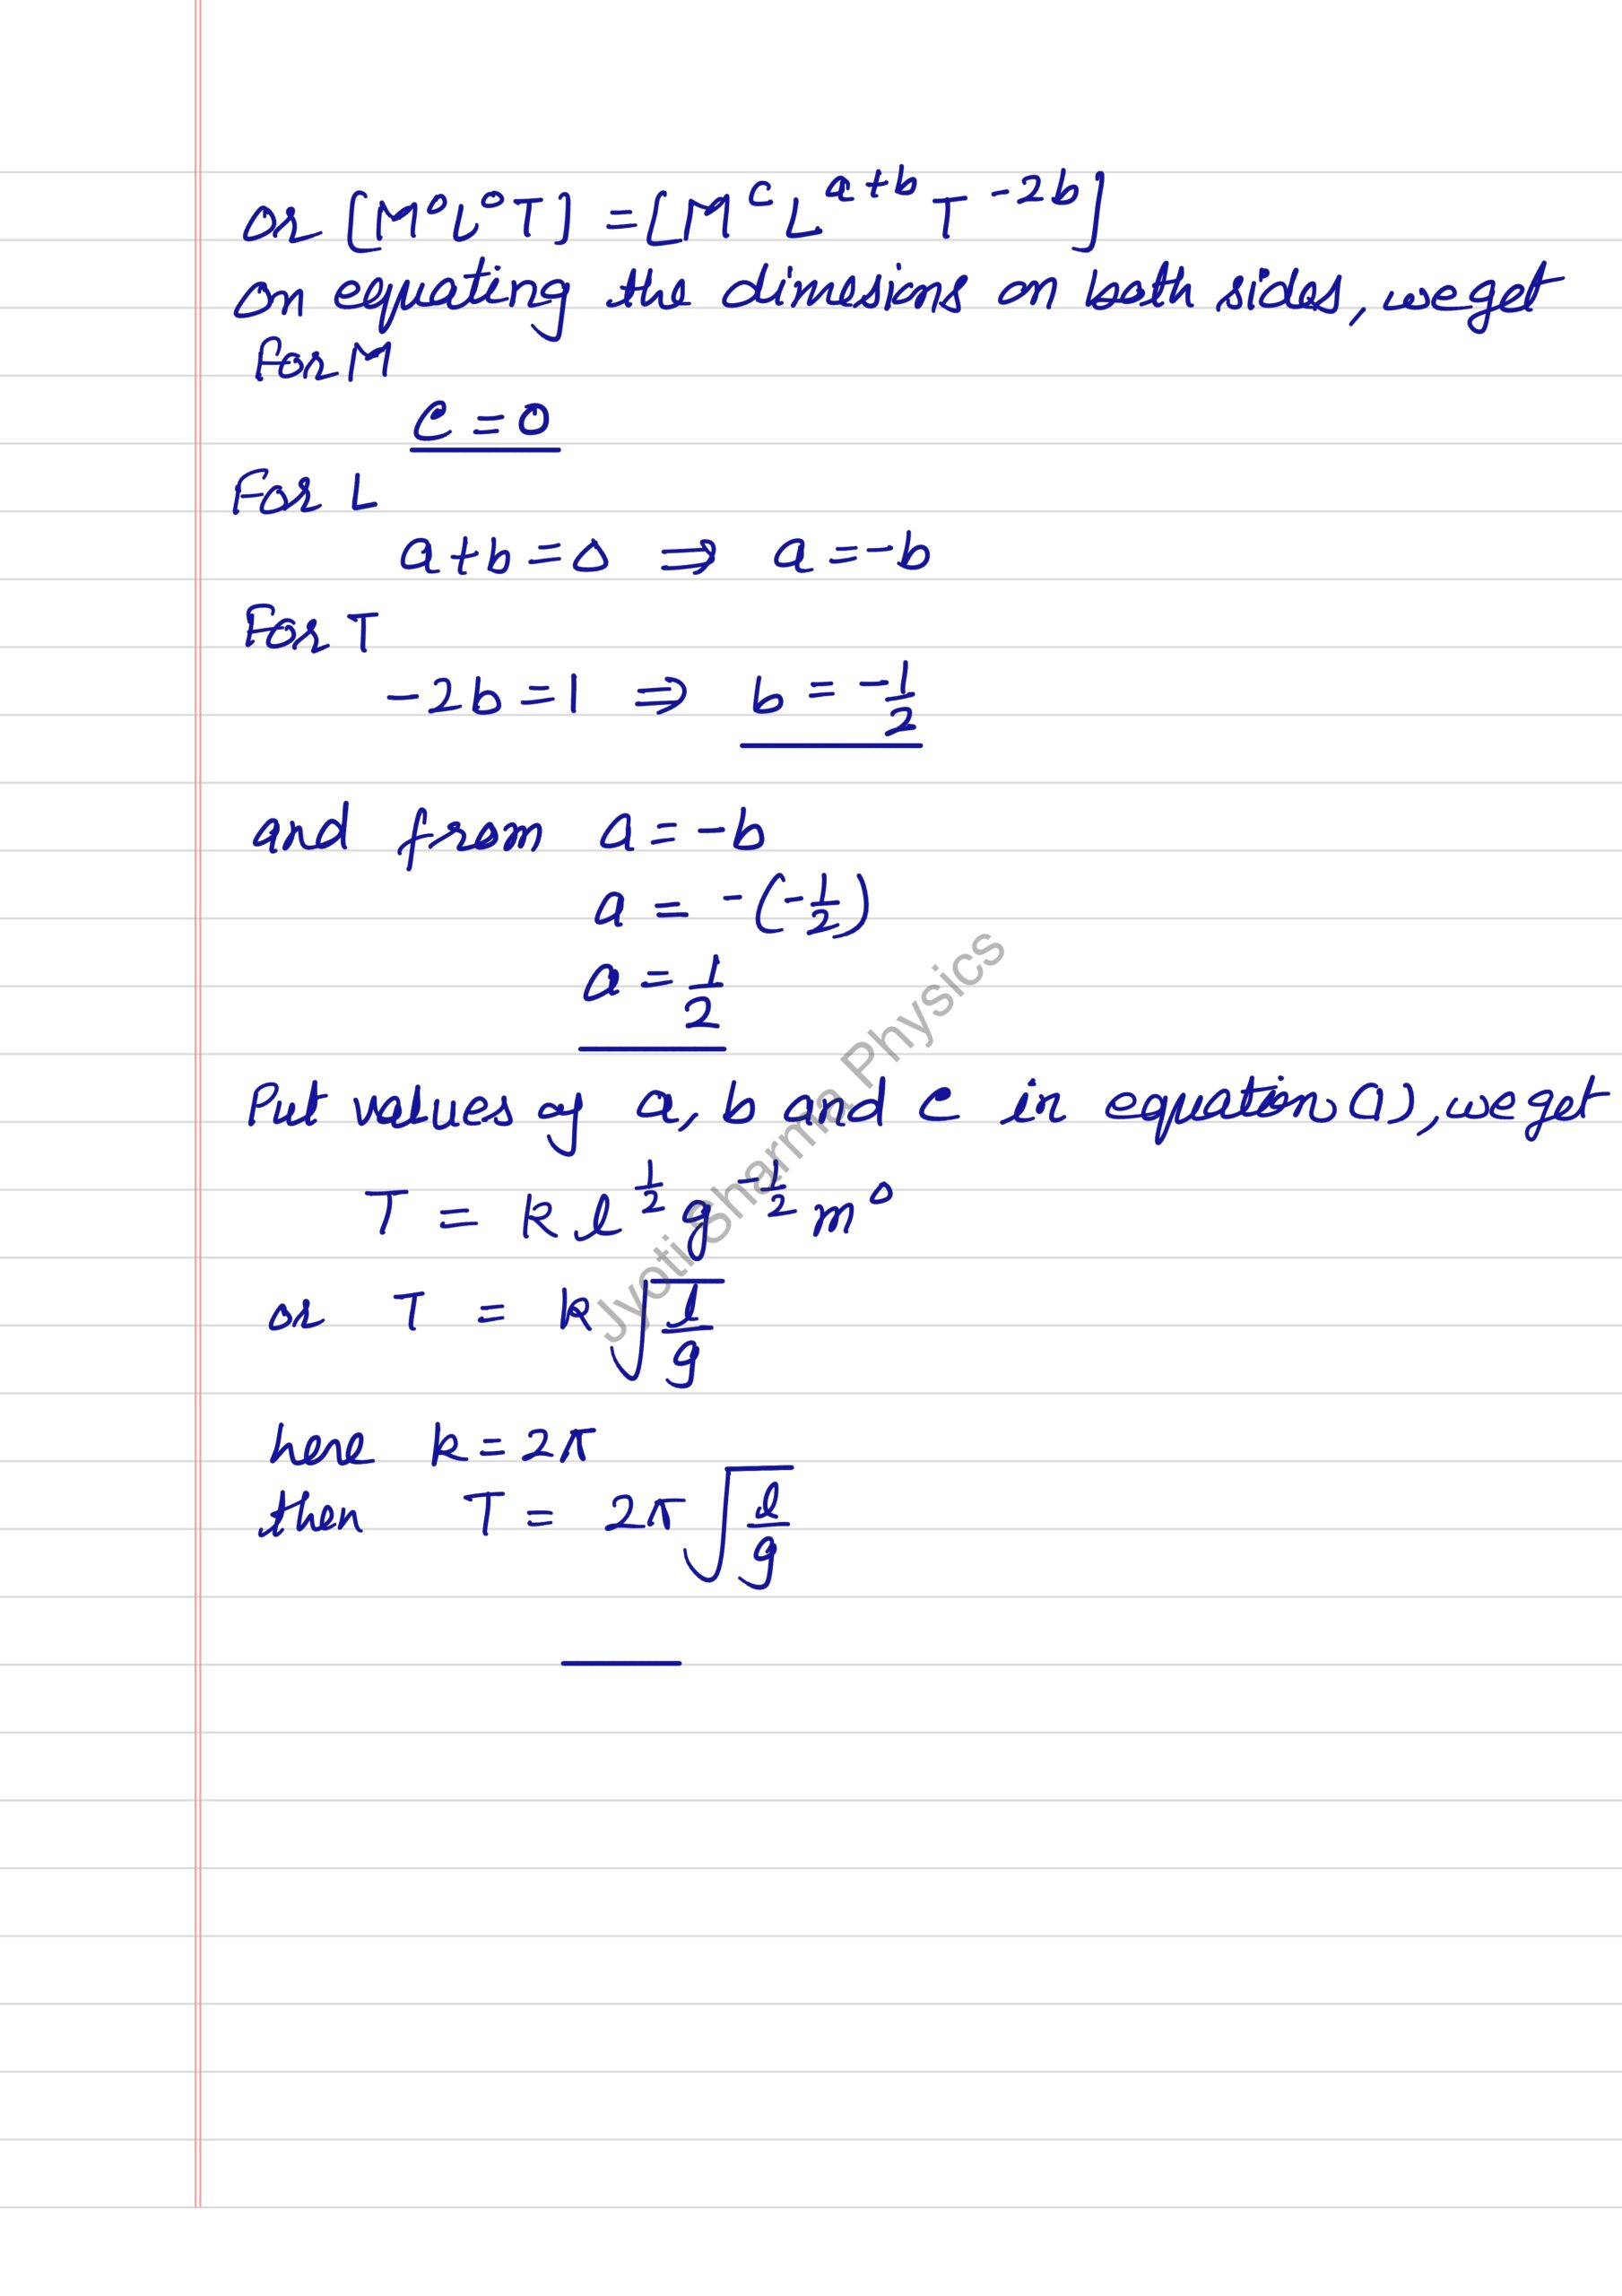 or [M⁰L⁰T] = [M^c L^{a+b} T^{-2b}]
on equating the dimensions on both sides, we get
For M
c = 0
For L
a+b = 0 ⇒ a = -b
For T
-2b = 1 ⇒ b = -1/2
and from a = -b
a = -(-1/2)
a = 1/2
Put values of a, b and c in equation (1), we get
T = k l^{1/2} g^{-1/2} m⁰
or T = k √(l/g)
here k = 2π
then T = 2π √(l/g)
Jyoti Sharma Physics